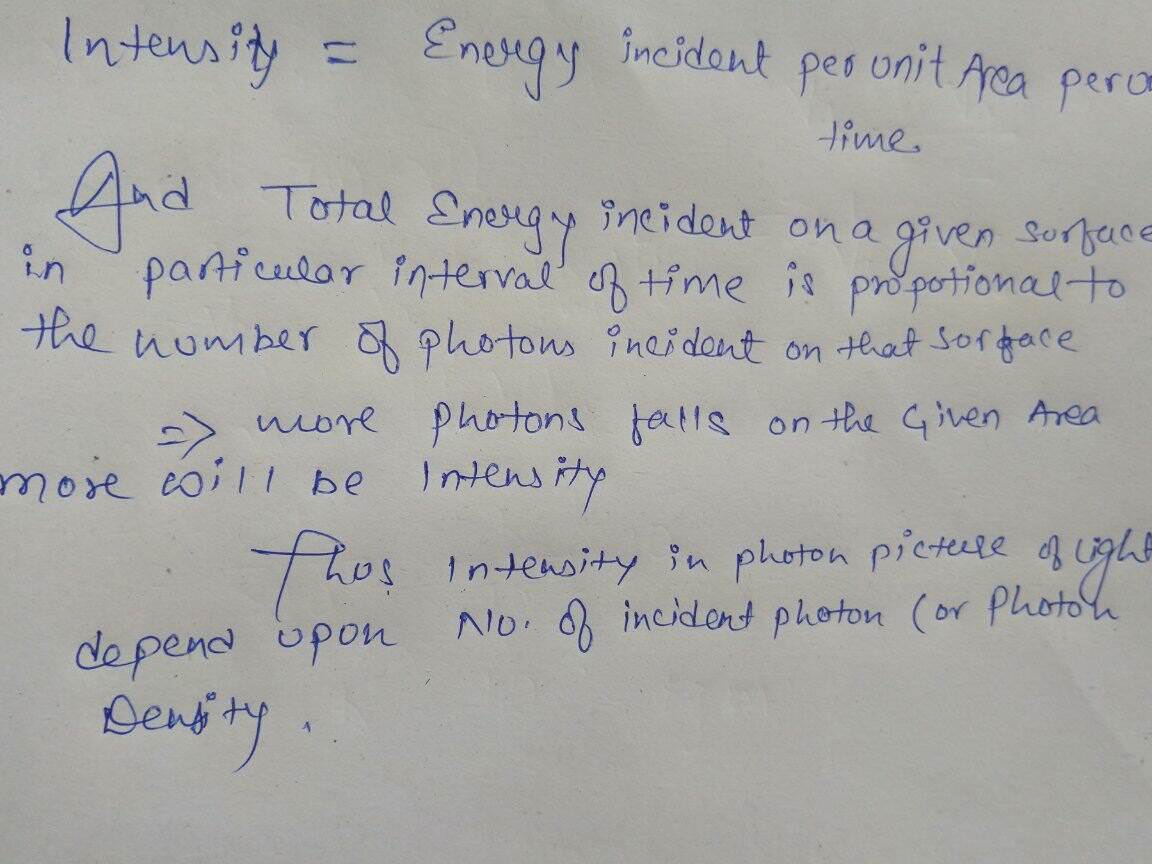 Intensity = Energy incident per unit Area per u
time.
And Total Energy incident on a given surface
in particular interval of time is propotional to
the number of photons incident on that sorface
=> more photons falls on the Given Area
more will be Intensity
Thus Intensity in photon picture of light
depend upon No. of incident photon (or Photon
Density.